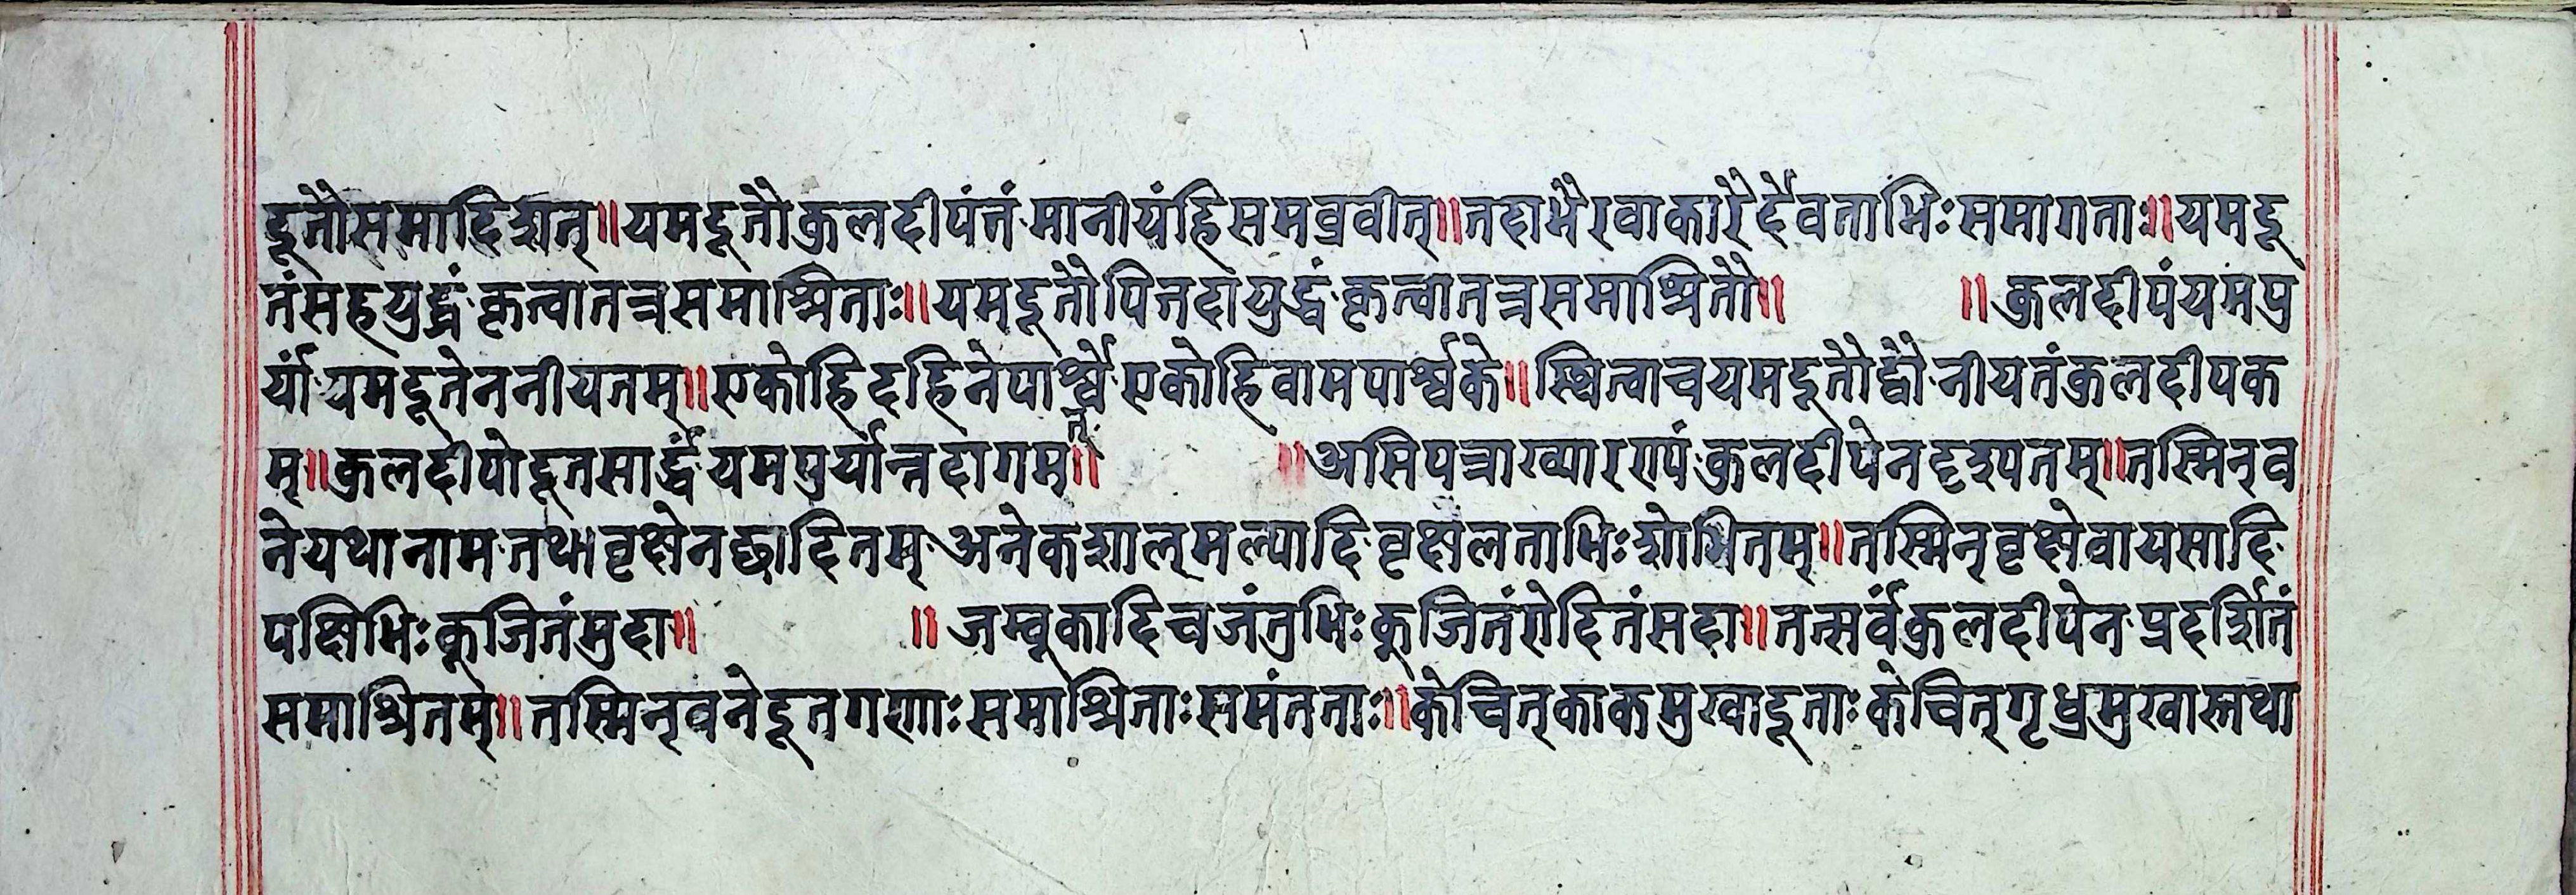 द्दूतौसमादिशत्॥यमदूतौकुलदीपंतंमानीयंहिसमब्रवीत्॥तदाभैरवाकारैर्देवताभिःसमागताः॥यमदू
तंसहयुद्धंकृत्वातत्रसमाश्रिताः॥यमदूतौपितदायुद्धंकृत्वातत्रसमाश्रितौ॥ ॥कुलदीपंयमपु
र्यांयमदूतेननीयतम्॥एकोहिदहिनेपार्श्वेएकोहिवामपार्श्वके॥स्थित्वाचयमदूतौद्वौनीयतंकुलदीपक
म्॥कुलदीपोदूतसार्द्धंयमपुर्यान्तदागमत्॥ ॥असिपत्राख्यारण्यंकुलदीपेनदृश्यतम्॥तस्मिन्व
नेयथानामतथावृक्षेनछादितम्अनेकशाल्मल्यादिवृक्षलताभिःशोभितम्॥तस्मिन्वृक्षेवायसादि
पक्षिभिःकूजितंमुदा॥ ॥जम्बूकादिचजंतुभिःकूजितंरोदितंसदा॥तत्सर्वंकुलदीपेनप्रदर्शितं
समाश्रितम्॥तस्मिन्वनेदूतगणाःसमाश्रिताःसमंतताः॥केचित्काकमुखादूताःकेचित्गृध्रमुखास्तथा